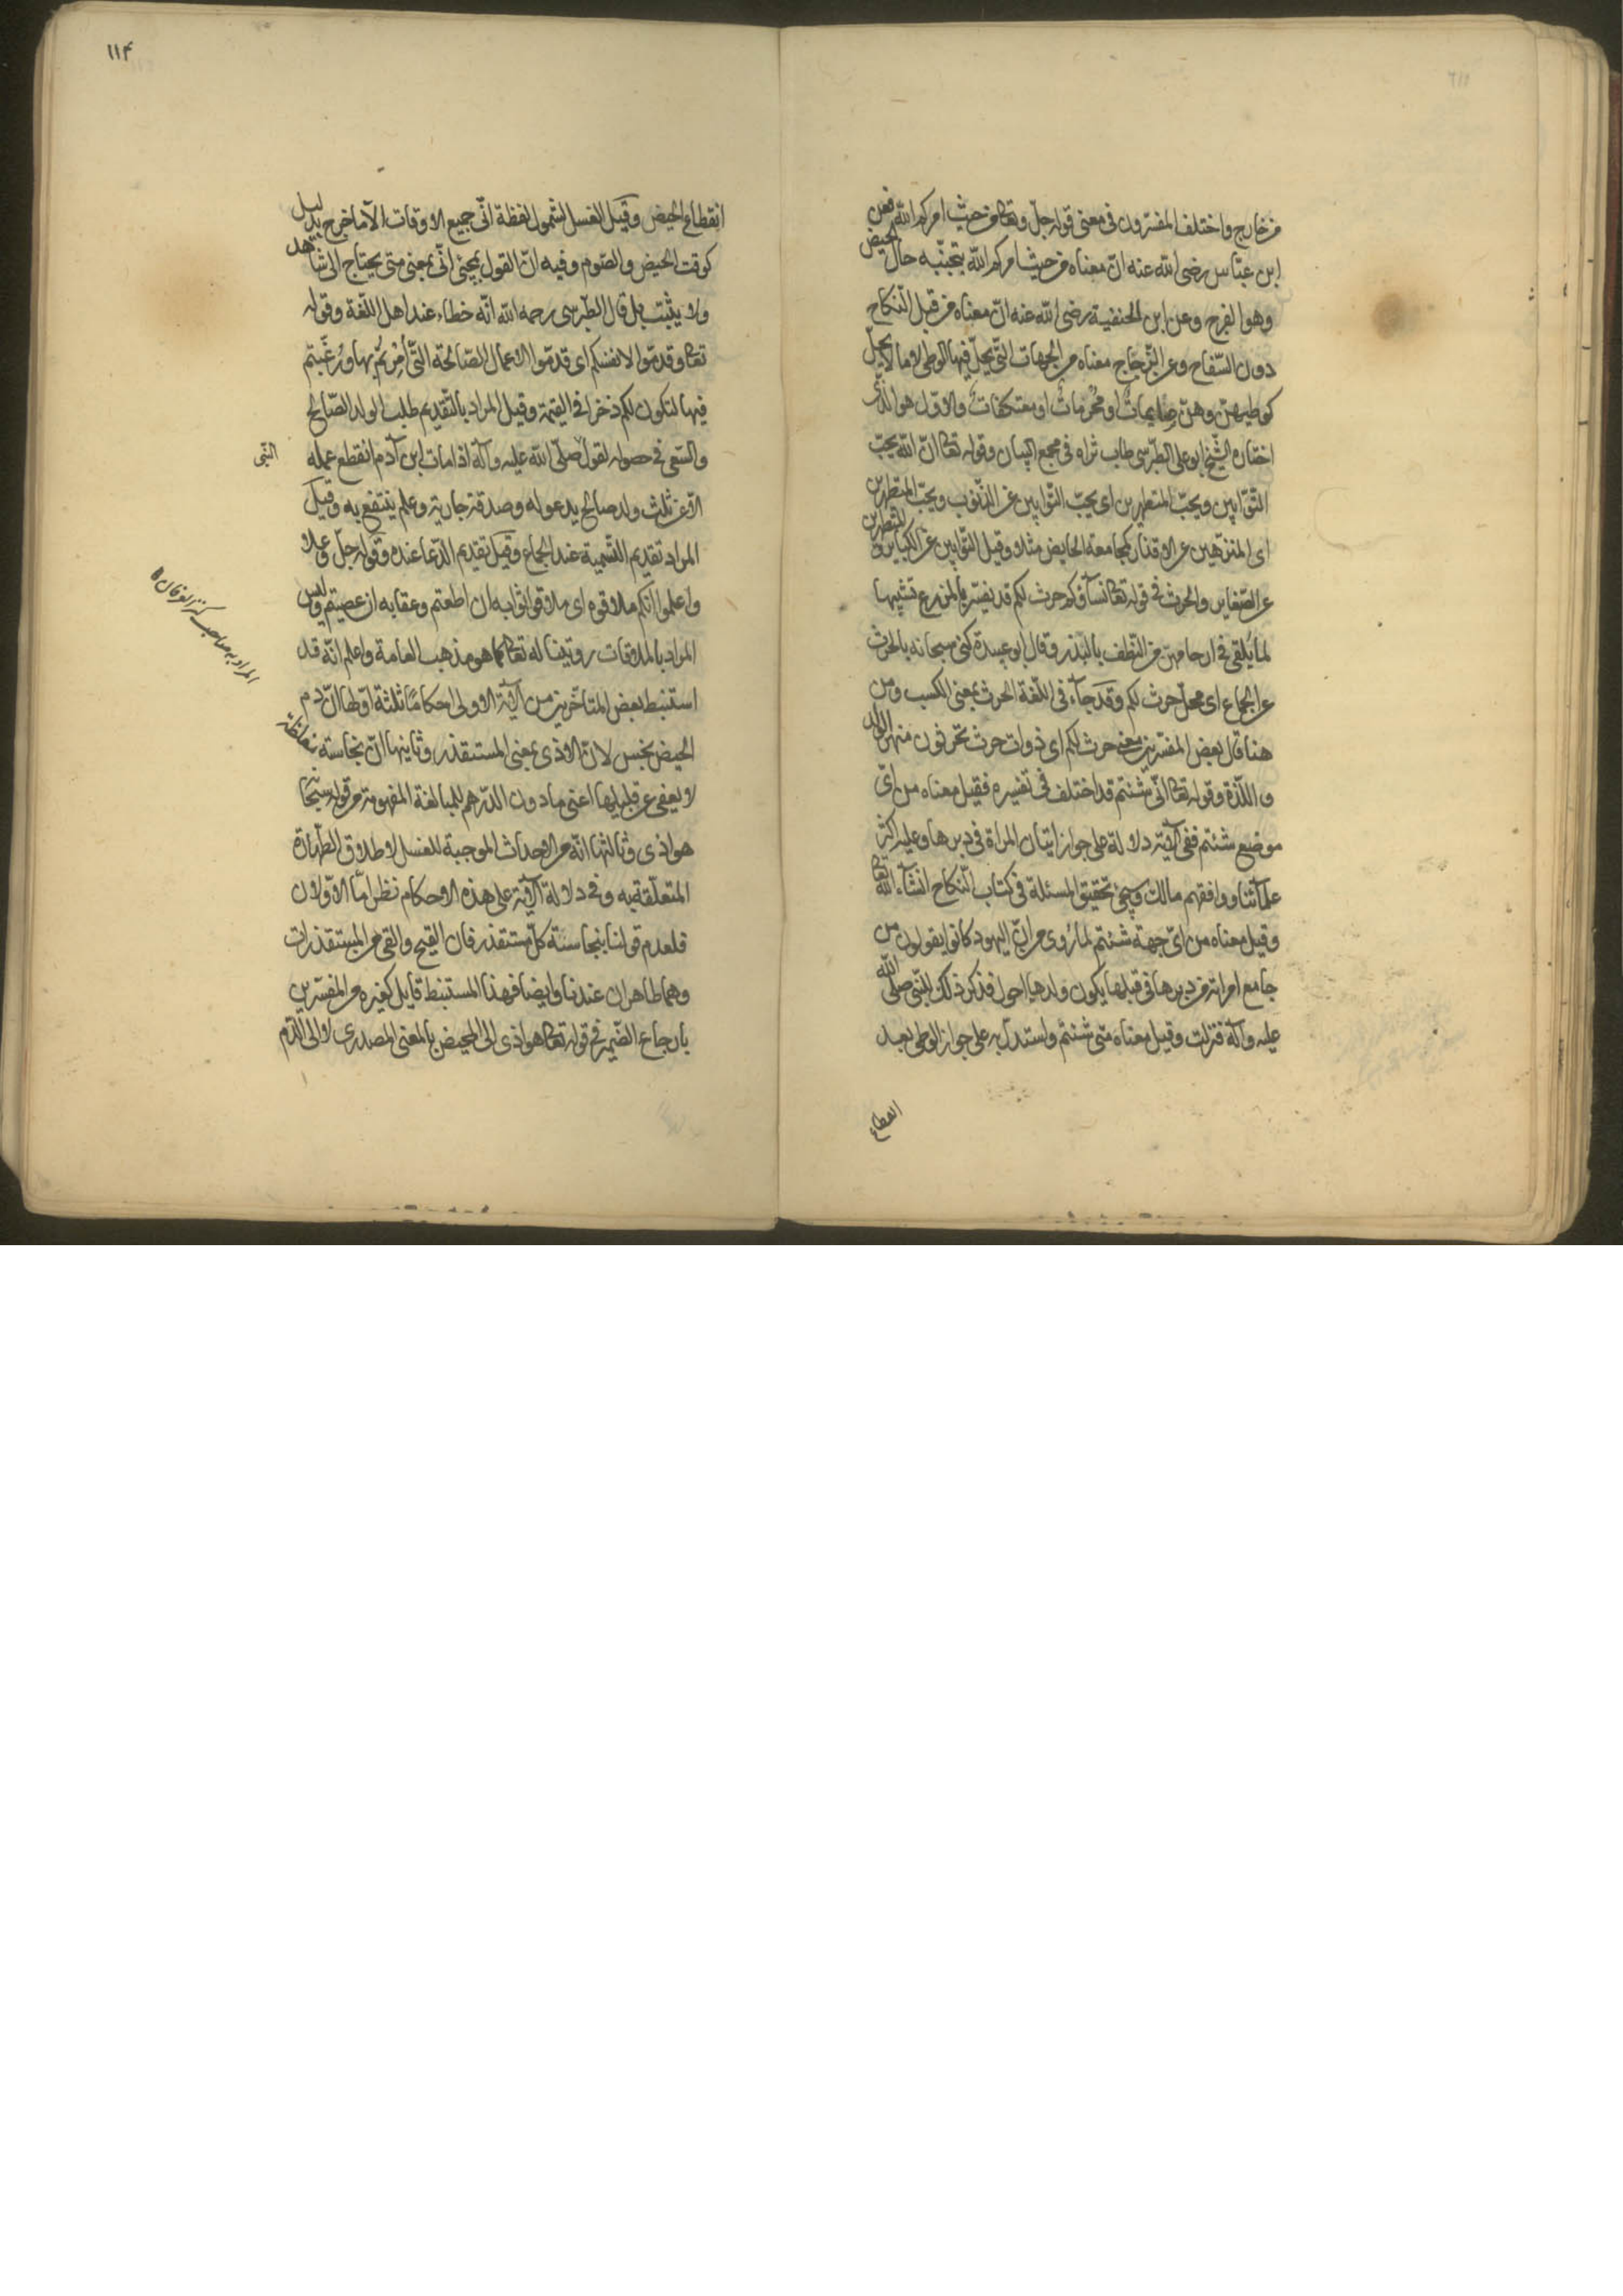 من خارج واختلف المفسرون في معنى قوله جل وتعالى من حيث امركم الله فعن
ابن عباس رضى الله عنه ان معناه من حيث امركم الله بتجنبه حال الحيض
وهو الفرج وعن ابن الحنفية رضى الله عنه ان معناه من قبل النكاح
دون السفاح وعن الزجاج معناه من الجهات التي يحل فيها الوطى لا ما لا يحل
كوطيهن وهن صايمات او محرمات او معتكفات والاول هو الذى
اختاره الشيخ ابو على الطبرسى طاب ثراه فى مجمع البيان وقوله تعالى ان الله يحب
التوابين ويحب المتطهرين اى يحب التوابين عن الذنوب ويحب المتطهرين
اى المتنزهين عن الاقذار كمجامعة الحايض مثلا وقيل التوابين عن الكباير والمتطهرين
عن الصغاير والحرث في قوله تعالى نساؤكم حرث لكم قد يفسر بالمزرع تشبيها
لما يلقى في ارحامهن من النطف بالبذر وقال ابو عبيدة كنى سبحانه بالحرث
عن الجماع اى محل حرث لكم وقد جاء فى اللغة الحرث بمعنى الكسب ومن
هنا قال بعض المفسرين معنى حرث لكم اى ذوات حرث تحرثون منهن الولد
واللذة وقوله تعالى انى شئتم قد اختلف في تفسيره فقيل معناه من اى
موضع شئتم ففى الآية دلالة على جواز اتيان المراة في دبرها وعليه اكثر
علمآئنا ووافقهم مالك وسيجئ تحقيق المسئلة في كتاب النكاح انشآء الله تعالى
وقيل معناه من اى جهة شئتم لما روى من ان اليهود كانوا يقولون من
جامع امراته من دبرها في قبلها يكون ولدها احول فذكر ذلك للنبى صلى الله
عليه وآله فنزلت وقيل معناه متى شئتم واستدل به على جواز الوطى بعد
انقطاع
١١٤
انقطاع الحيض وقبل الغسل لشمول لفظة انى جميع الاوقات الا ما خرج بدليل
كوقت الحيض والصوم وفيه ان القول بمجئ انى بمعنى متى يحتاج الى شاهد
ولا يثبت بل قال الطبرسى رحمه الله انه خطاء عند اهل اللغة وقوله
تعالى وقدموا لانفسكم اى قدموا الاعمال الصالحة التى امرتم بها ورغبتم
فيها لتكون لكم ذخرا في القيمة وقيل المراد بالتقديم طلب الولد الصالح
والسعى في حصوله لقول صلى الله عليه وآله اذا مات ابن آدم انقطع عمله
النبى
الا عن ثلث ولد صالح يدعو له وصدقة جارية وعلم ينتفع به وقيل
المراد تقديم التسمية عند الجماع وقيل تقديم الدعا عنده وقوله جل وعلا
واعلموا انكم ملاقوه اى ملاقوا ثوابه ان اطعتم وعقابه ان عصيتم وليس
المراد بالملاقات رويتنا له تعالى كما هو مذهب العامة واعلم انه قد
استنبط بعض المتأخرين من الآية الاولى احكامًا ثلثة اولها ان دم
المراد به صاحب كنز العرفان
الحيض نجس لان الاذى بمعنى المستقذر وثانيها ان نجاسته مغلظة
لا يعفى عن قليلها اعنى ما دون الدرهم للمبالغة المفهومة من قوله سبحانه
هو اذى وثالثها انه من الاحداث الموجبة للغسل لاطلاق الطهارة
المتعلقة به وفي دلالة الآية على هذه الاحكام نظر اما الاولان
فلعدم قولنا بنجاسة كل مستقذر فان القيح والقى من المستقذرات
وهما طاهران عندنا وايضا فهذا المستنبط قايل كغيره من المفسرين
بارجاع الضمير في قوله تعالى هو اذى الى المحيض بالمعنى المصدرى لا الى الدم